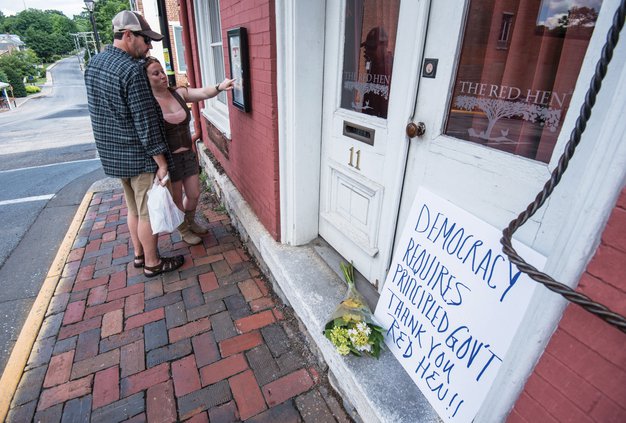 THE RED HEN
THE RED HEN
11
DEMOCRACY
REQUIRES
PRINCIPLED GOV'T
THANK YOU
RED HEN!!